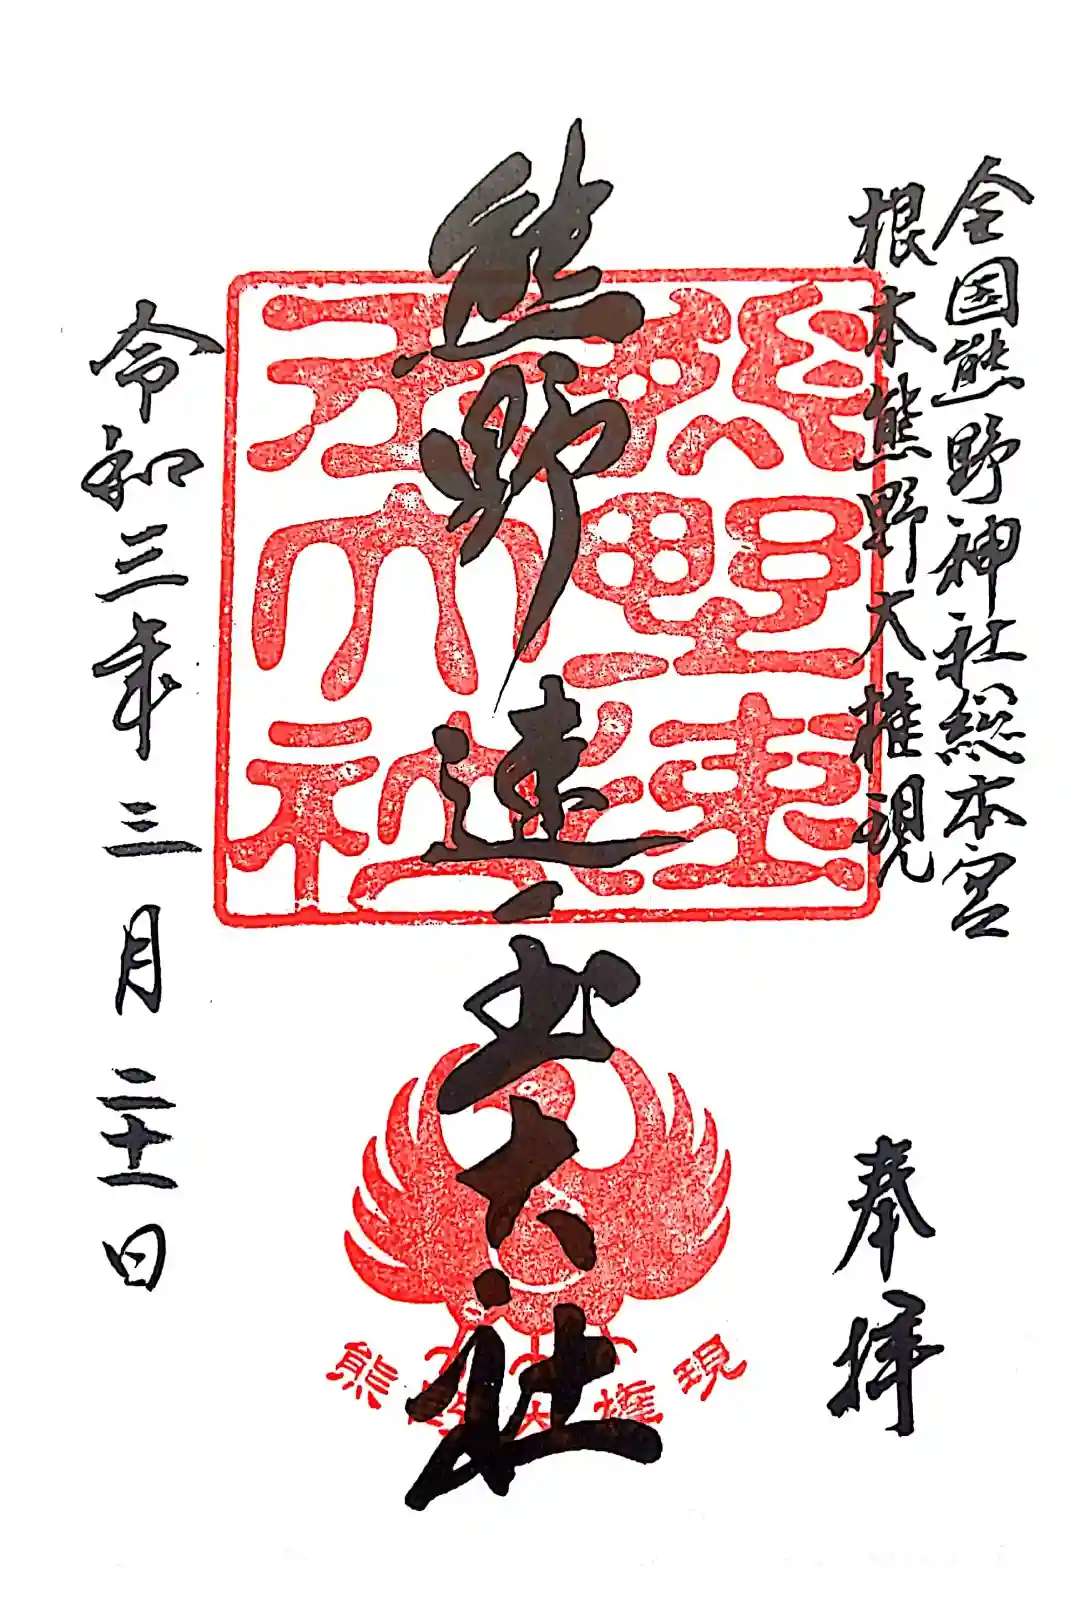 全国熊野神社総本宮
根本熊野大権現
奉拝
熊野速玉大社
熊野速玉大社
熊野大権現
令和三年三月二十一日